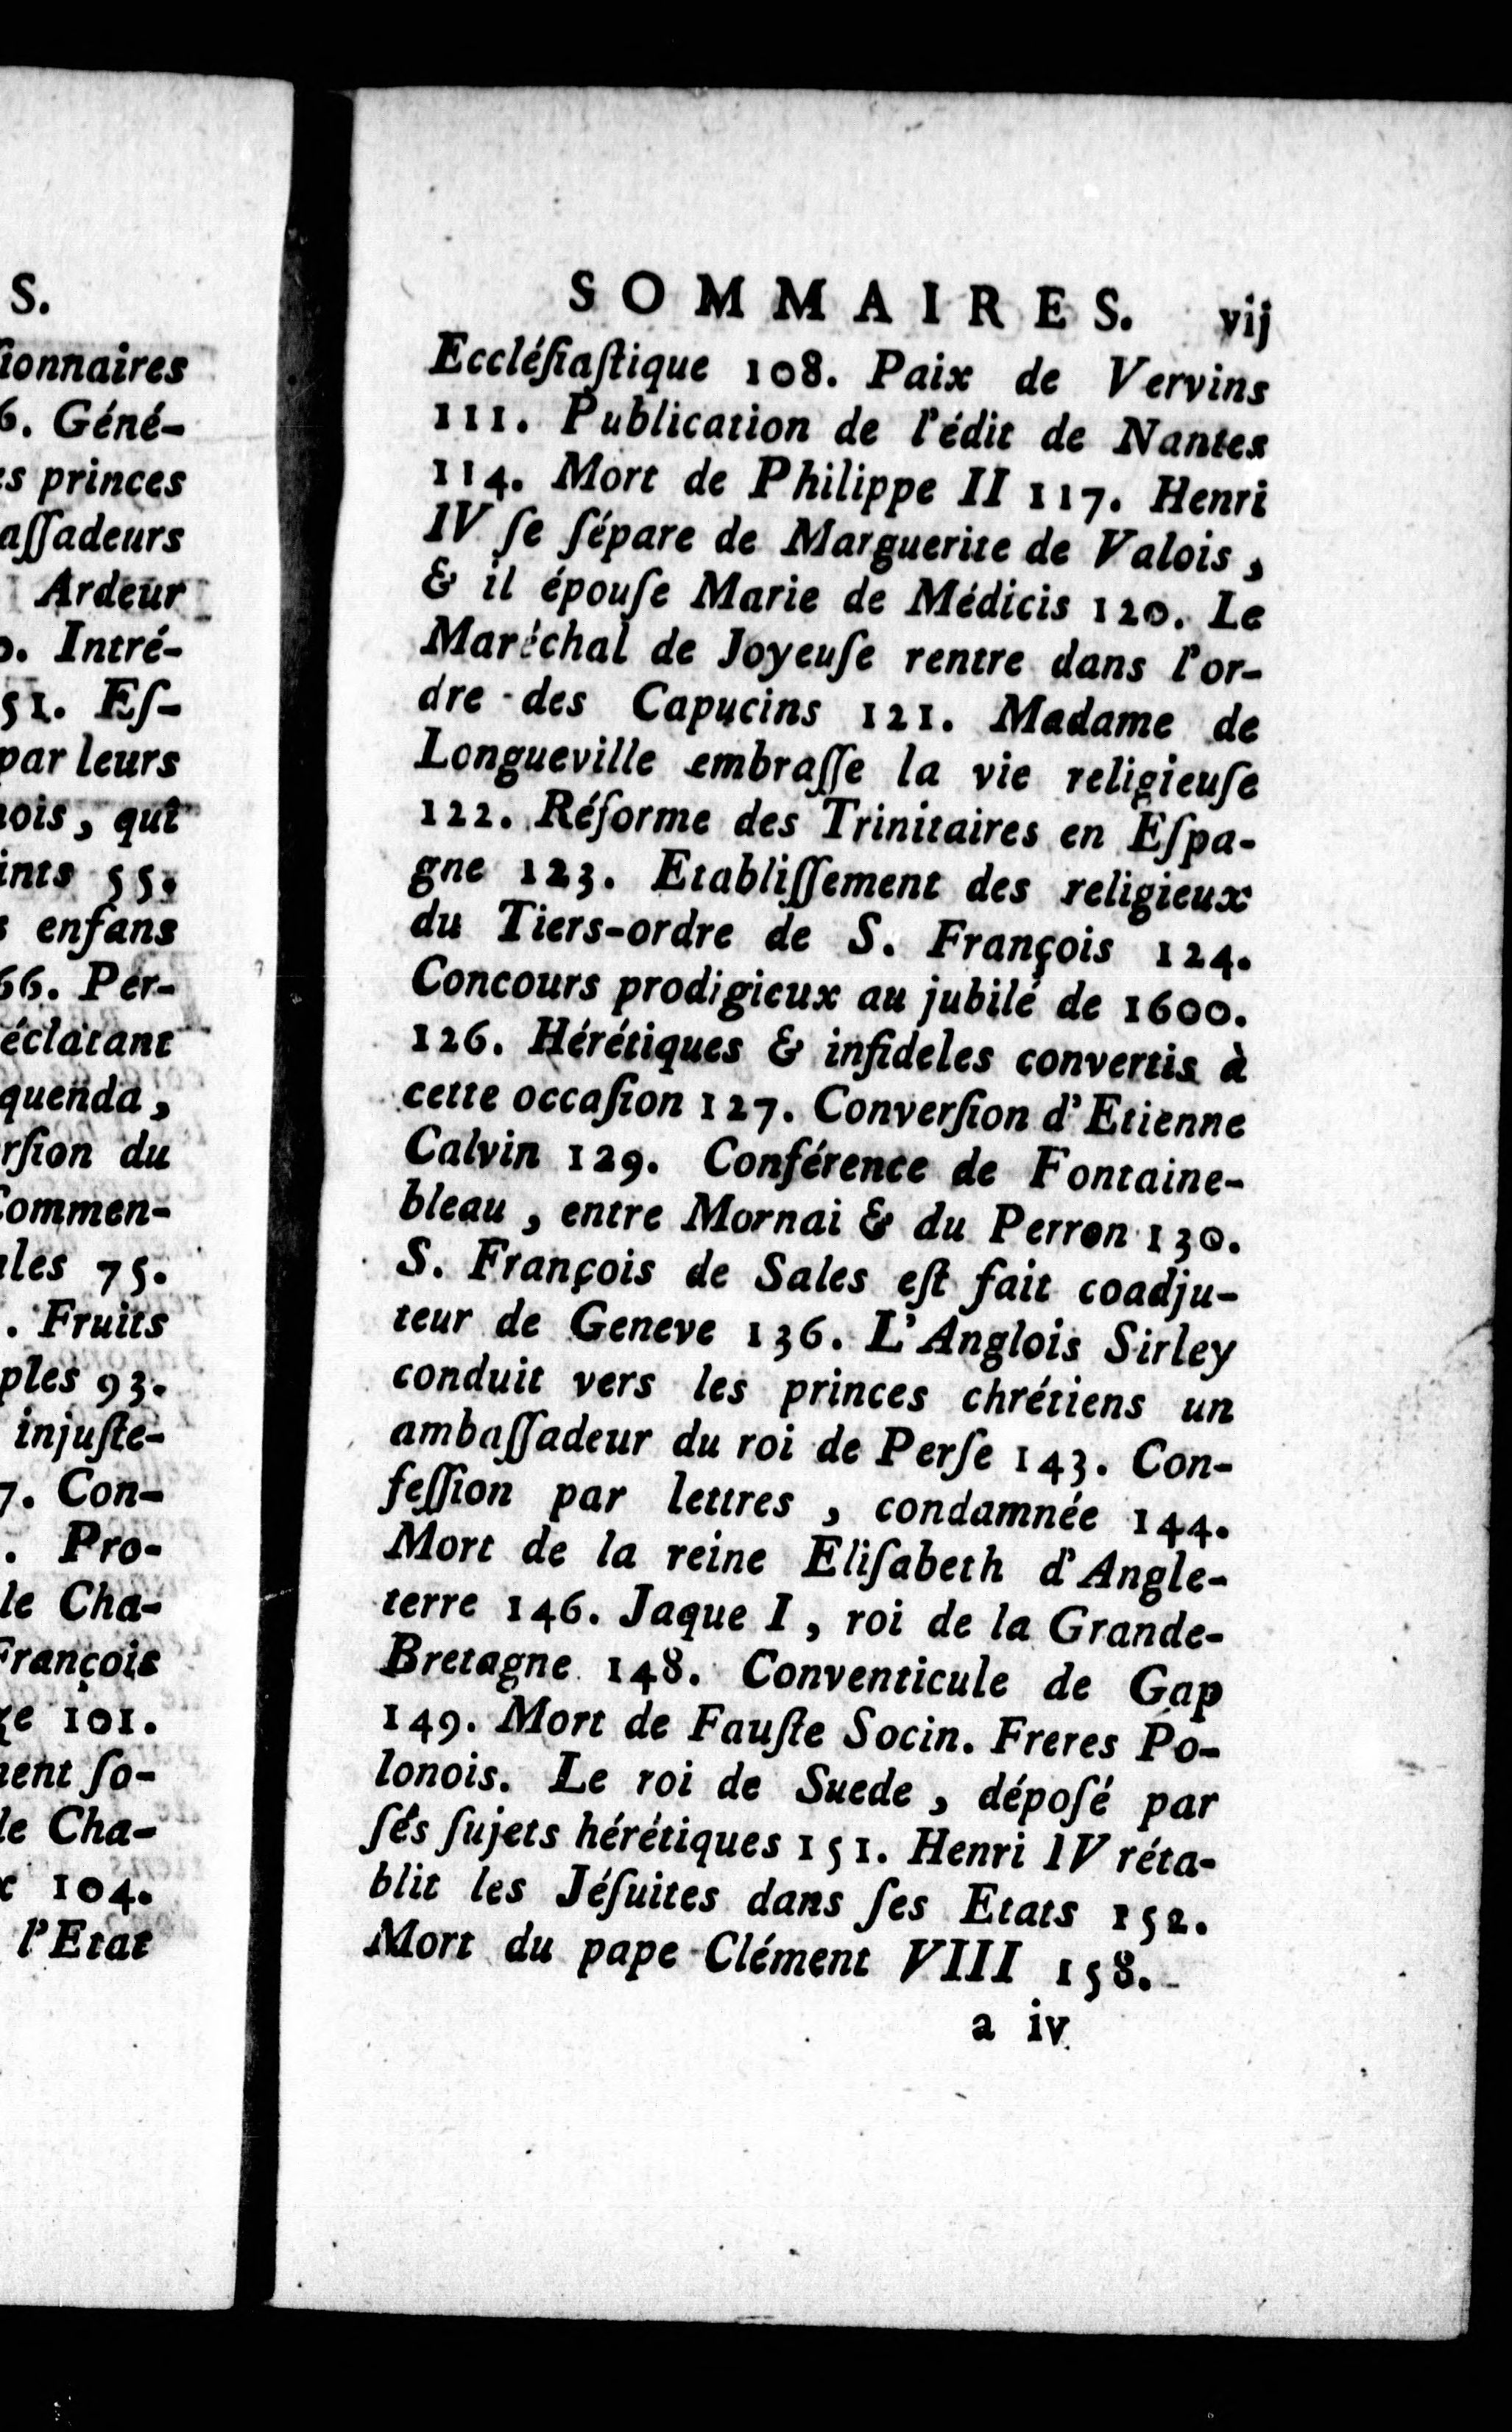 S.
ſionnaires
6. Géné-
es princes
aſſadeurs
Ardeur
0. Intré-
51. Eſ-
par leurs
nois, qui
ints 55.
s enfans
66. Per-
éclatant
quenda,
rſion du
Commen-
ales 75.
. Fruits
ples 93.
injuſte-
7. Con-
. Pro-
le Cha-
François
ge 101.
ment ſo-
le Cha-
x 104.
l'Etat
SOMMAIRES. vij
Eccléſiaſtique 108. Paix de Vervins
111. Publication de l'édit de Nantes
114. Mort de Philippe II 117. Henri
IV ſe ſépare de Marguerite de Valois,
& il épouſe Marie de Médicis 120. Le
Maréchal de Joyeuſe rentre dans l'or-
dre des Capucins 121. Madame de
Longueville embraſſe la vie religieuſe
122. Réforme des Trinitaires en Eſpa-
gne 123. Etabliſſement des religieux
du Tiers-ordre de S. François 124.
Concours prodigieux au jubilé de 1600.
126. Hérétiques & infideles convertis à
cette occaſion 127. Converſion d'Etienne
Calvin 129. Conférence de Fontaine-
bleau, entre Mornai & du Perron 130.
S. François de Sales eſt fait coadju-
teur de Geneve 136. L'Anglois Sirley
conduit vers les princes chrétiens un
ambaſſadeur du roi de Perſe 143. Con-
feſſion par lettres, condamnée 144.
Mort de la reine Eliſabeth d'Angle-
terre 146. Jaque I, roi de la Grande-
Bretagne 148. Conventicule de Gap
149. Mort de Fauſte Socin. Freres Po-
lonois. Le roi de Suede, dépoſé par
ſes ſujets hérétiques 151. Henri IV réta-
blit les Jéſuites dans ſes Etats 152.
Mort du pape Clément VIII 158.
a iv